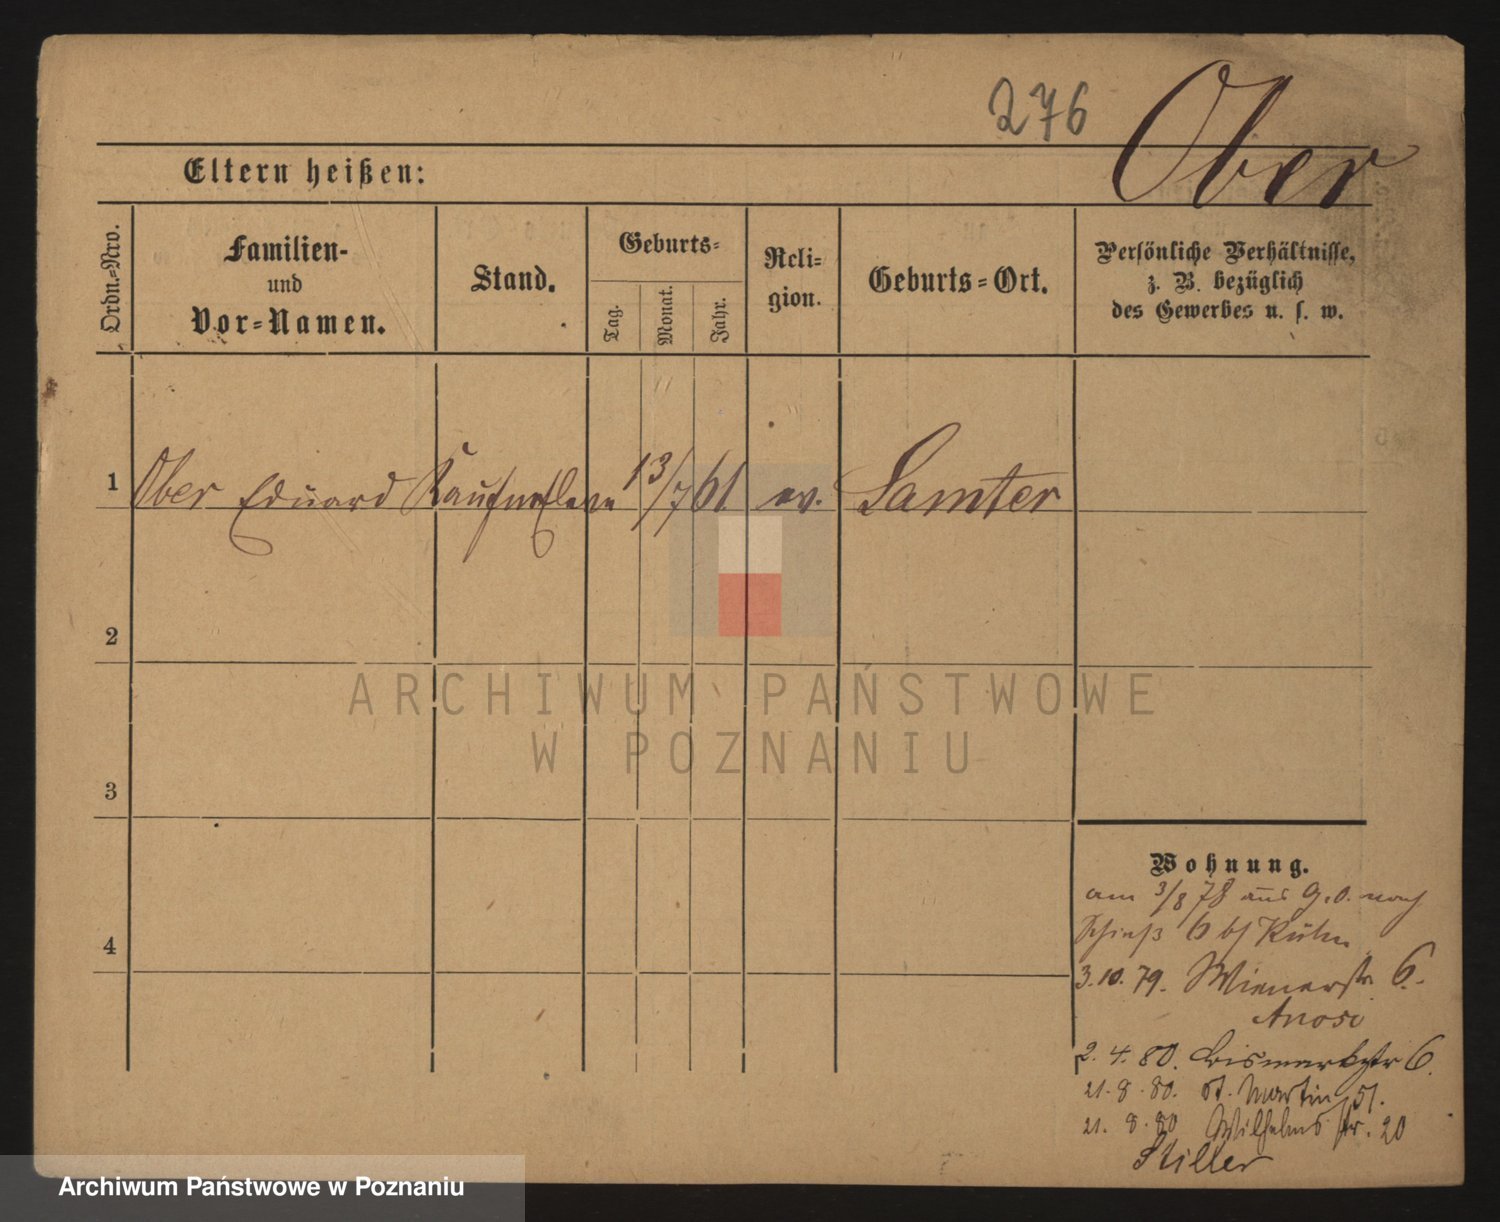 276 Ober
Eltern heißen:
Ordn.=Nro.
Familien-
und
Vor=Namen.
Stand.
Geburts=
Tag.
Monat.
Jahr.
Reli=
gion.
Geburts=Ort.
Persönliche Verhältnisse,
z. B. bezüglich
des Gewerbes u. s. w.
1 Ober Eduard 13/7 61 ev. Samter
2
ARCHIWUM PAŃSTWOWE
W POZNANIU
3
Wohnung.
am 3/8 78 aus G.O. nach
6 b/ Kühn
4
3.10.79. Wienerstr 6.
2.4.80. Bismarkstr 6.
21.8.80. St. Martin 51.
21.8.80 Wilhelmsstr. 20
Stiller
Archiwum Państwowe w Poznaniu